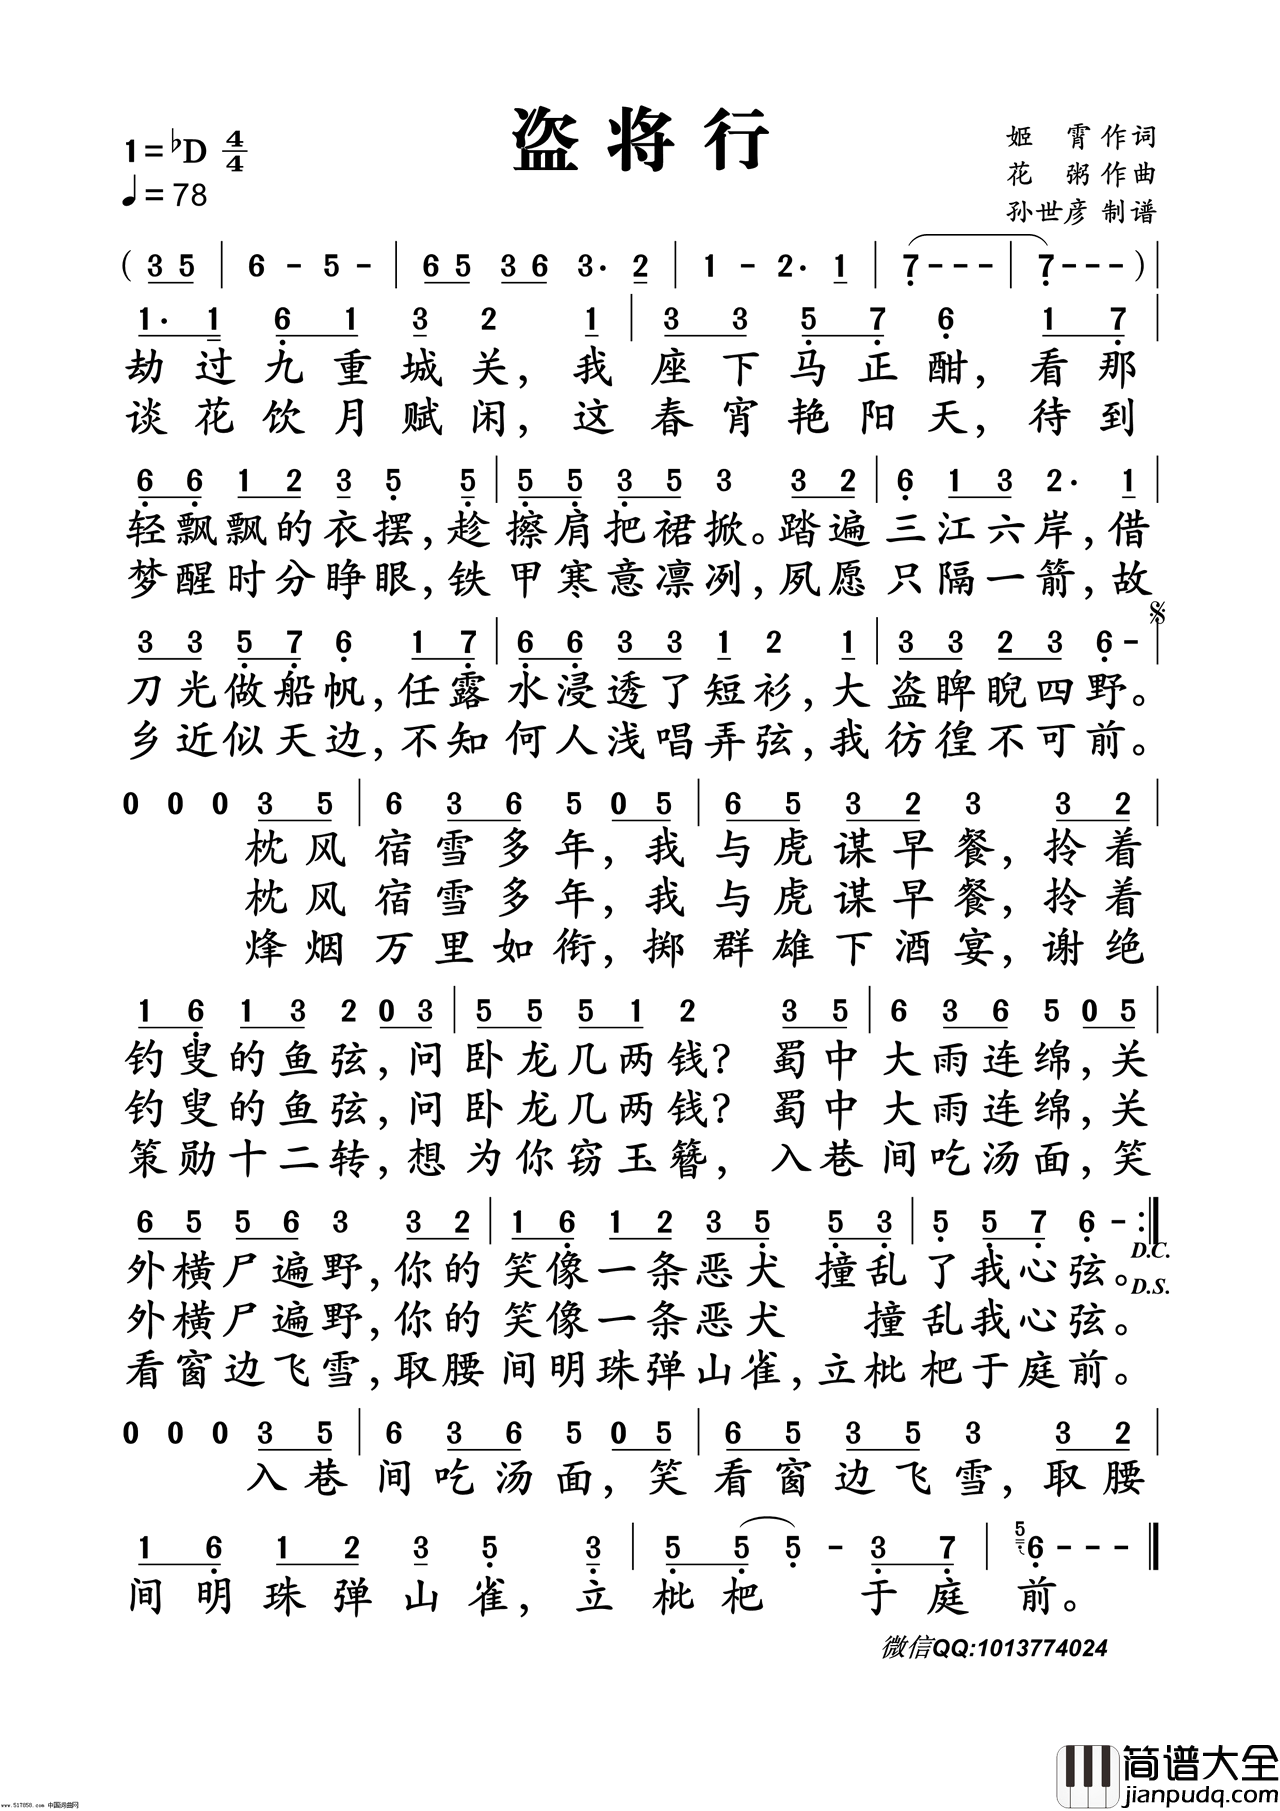 盗将行
1=♭D 4/4
♩=78
姬 霄 作词
花 粥 作曲
孙世彦 制谱
( 3 5 | 6 - 5 - | 6 5 3 6 3· 2 | 1 - 2· 1 | 7 - - - | 7 - - - ) |
1· 1 6 1 3 2 1 | 3 3 5 7 6 1 7 |
劫过九重城关，我座下马正酣，看那
谈花饮月赋闲，这春宵艳阳天，待到
6 6 1 2 3 5 5 | 5 5 3 5 3 3 2 | 6 1 3 2· 1 |
轻飘飘的衣摆，趁擦肩把裙掀。踏遍三江六岸，借
梦醒时分睁眼，铁甲寒意凛冽，夙愿只隔一箭，故
3 3 5 7 6 1 7 | 6 6 3 3 1 2 1 | 3 3 2 3 6 - |
刀光做船帆，任露水浸透了短衫，大盗睥睨四野。
乡近似天边，不知何人浅唱弄弦，我彷徨不可前。
0 0 0 3 5 | 6 3 6 5 0 5 | 6 5 3 2 3 3 2 |
枕风宿雪多年，我与虎谋早餐，拎着
枕风宿雪多年，我与虎谋早餐，拎着
烽烟万里如衔，掷群雄下酒宴，谢绝
1 6 1 3 2 0 3 | 5 5 5 1 2 3 5 | 6 3 6 5 0 5 |
钓叟的鱼弦，问卧龙几两钱？蜀中大雨连绵，关
钓叟的鱼弦，问卧龙几两钱？蜀中大雨连绵，关
策勋十二转，想为你窃玉簪，入巷间吃汤面，笑
6 5 5 6 3 3 2 | 1 6 1 2 3 5 5 3 | 5 5 7 6 - :‖
D.C.
外横尸遍野，你的笑像一条恶犬 撞乱了我心弦。
D.S.
外横尸遍野，你的笑像一条恶犬 撞乱我心弦。
看窗边飞雪，取腰间明珠弹山雀，立枇杷于庭前。
0 0 0 3 5 | 6 3 6 5 0 5 | 6 5 3 5 3 3 2 |
入巷间吃汤面，笑看窗边飞雪，取腰
1 6 1 2 3 5 3 | 5 5 5 - 3 7 | 5 6 - - - ‖
间明珠弹山雀，立枇杷 于庭前。
微信QQ:1013774024
简谱大全
jianpudq.com
www.517858.com 中国词曲网